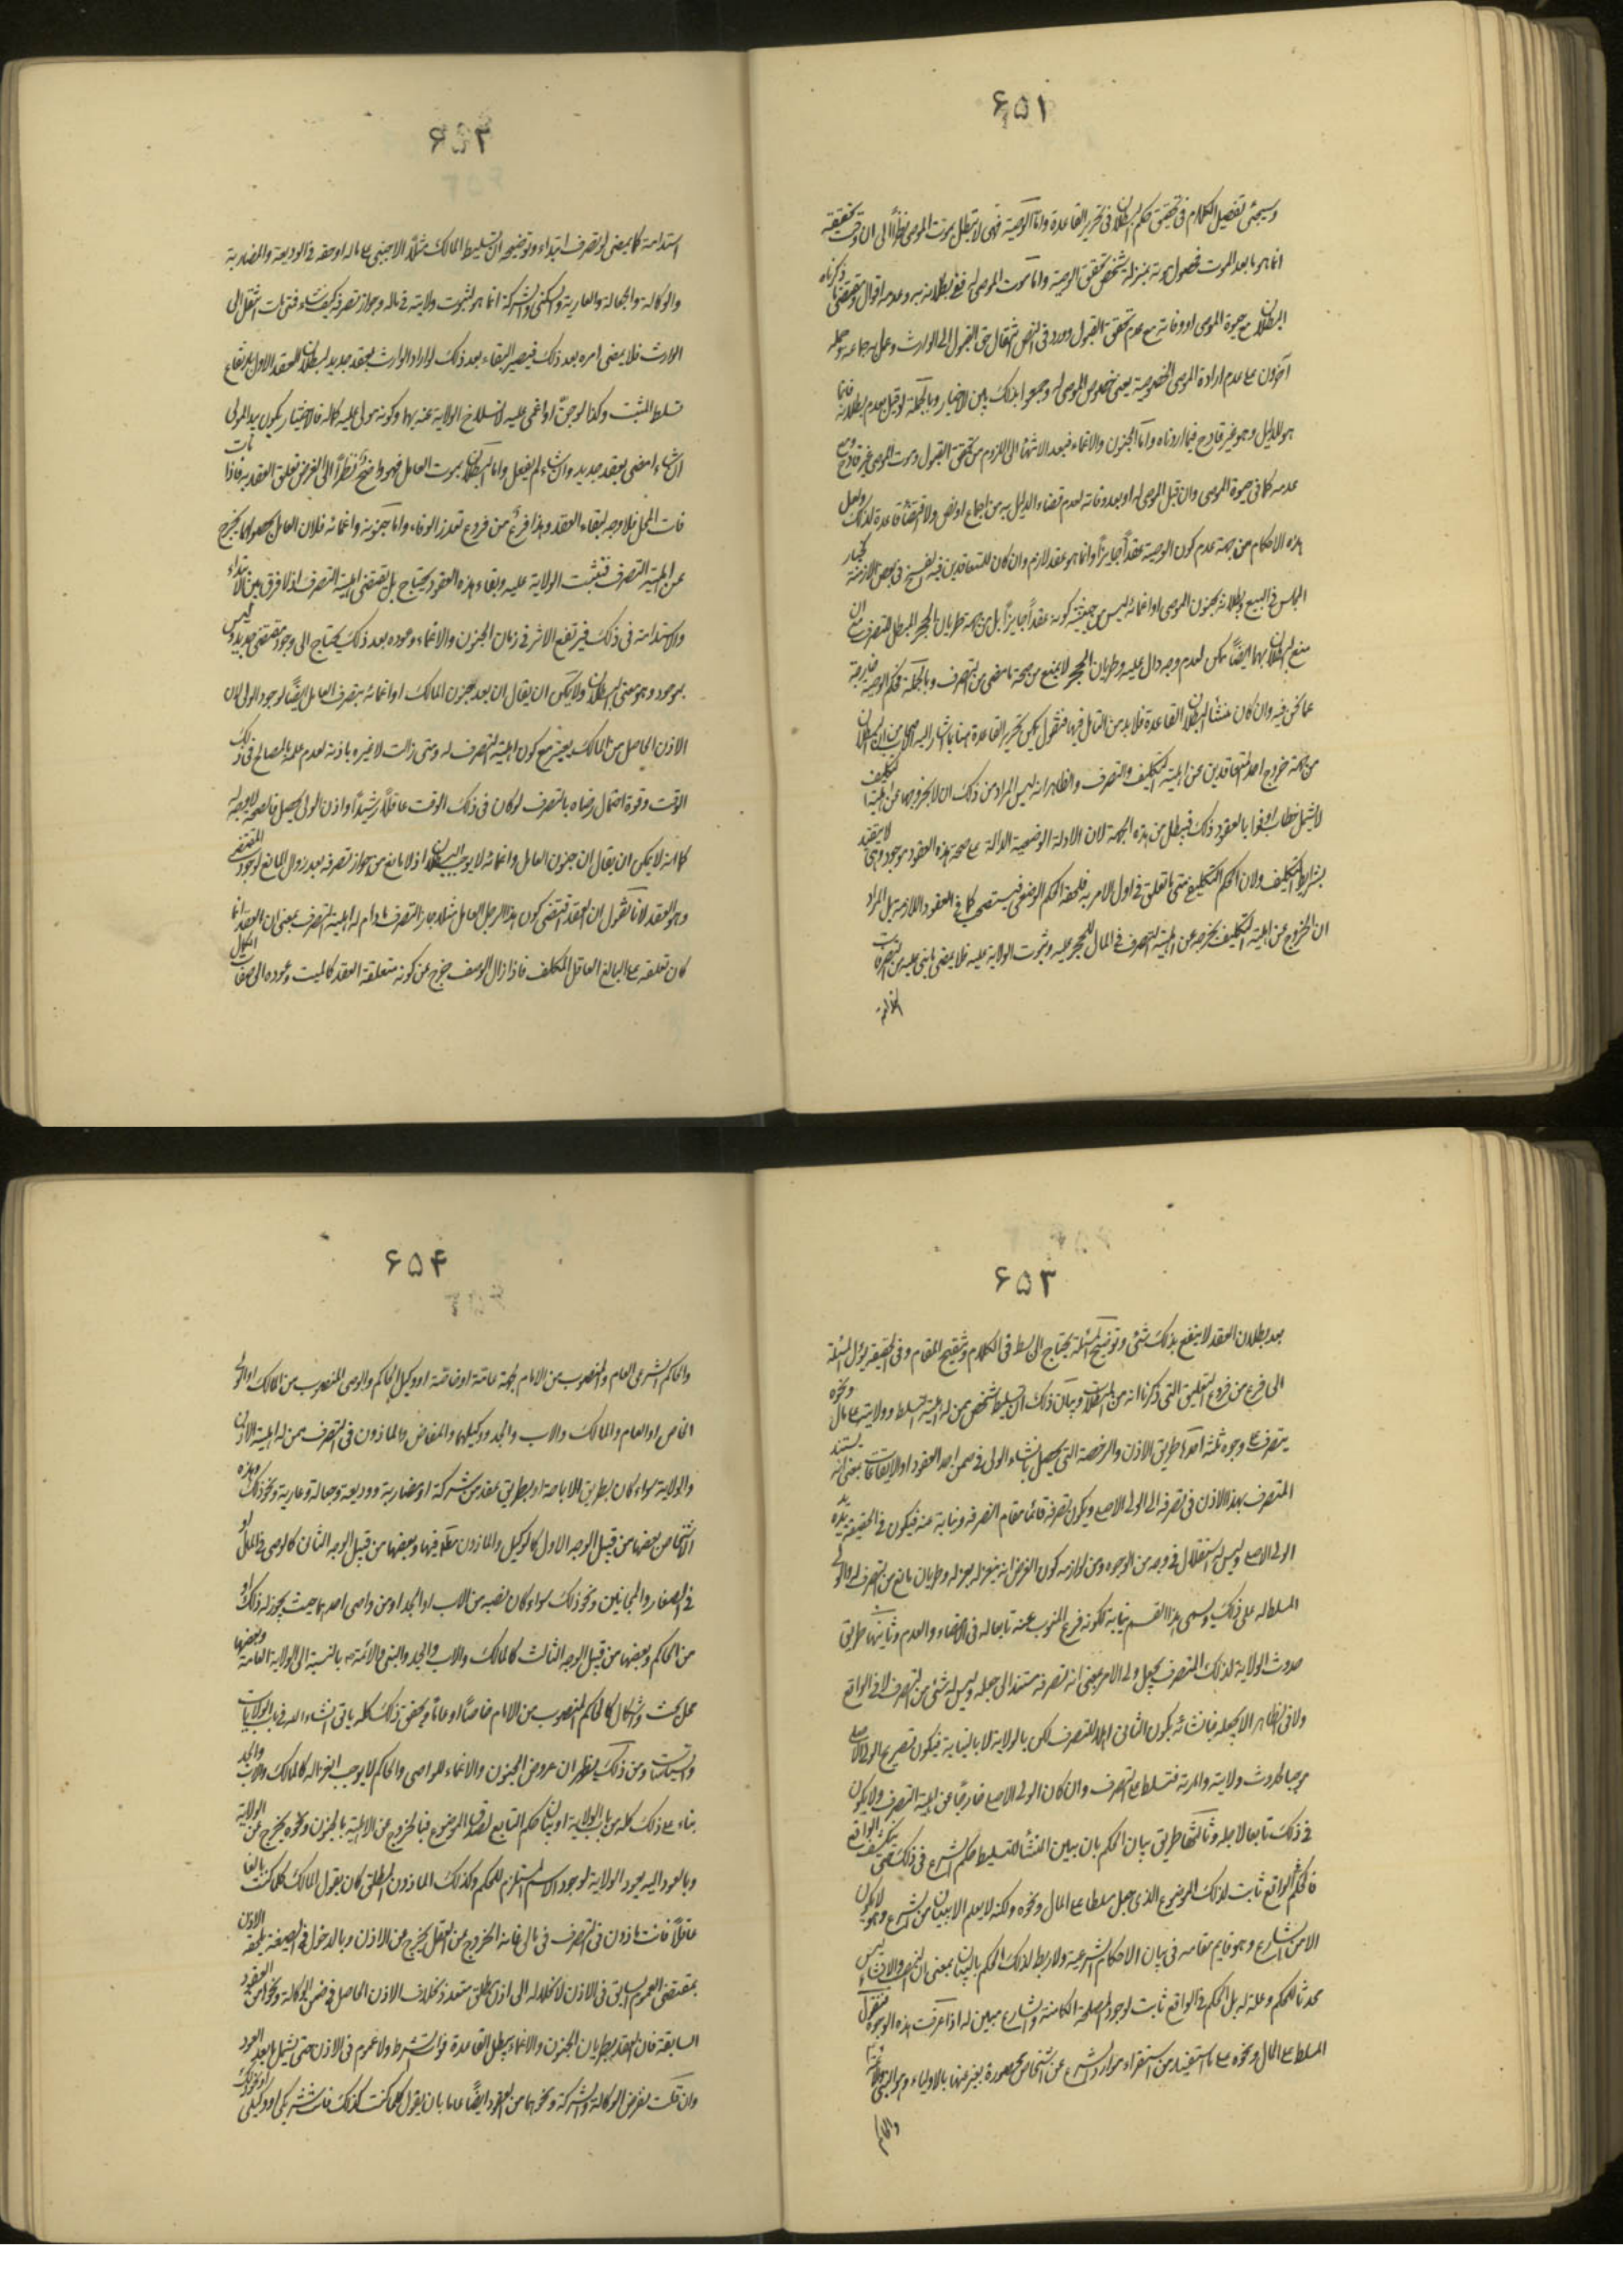 ۶۵۱
وسيجئ تفصيل الكلام فى تحقيق حكم البطلان فى تحرير القاعدة واما الوصية فهى لا يبطل بموت الموصى نظراً الى ان وقت تحقيقه
انما هو ما بعد الموت فحصول موته بمنزلة شخص تحقق الوصية واما موت الموصى له ففى بطلانه به وعدمه اقوال ومقتضى ما ذكرناه
البطلان مع حيوة الموصى او وفاته مع عدم تحقق القبول وورد فى النص انتقال حق القبول الى الوارث وعمل به جماعة وحمله
آخرون على عدم ارادة الموصى الخصوصية يعنى خصوص الموصى له وجمعوا بذلك بين الاخبار وبالجملة لو قيل بعدم بطلانه فانما
هو للدليل وهو غير قادح فيما اردناه واما الجنون والاغماء فبعد الانتهاء الى اللزوم من تحقق القبول وموت الموصى غير قادح ومع
عدمه كما فى حيوة الموصى وان قبل الموصى له او بعد وفاته لعدم قضاء الدليل به من اجماع او نص ولا اقتضاء قاعدة لذلك ولعل
هذه الاحكام من جهة عدم كون الوصية عقداً جايزاً وانما هو عقد لازم وان كان للمتعاقدين فيه الفسخ فى بعض الازمنة كخيار
المجلس فى البيع وبطلانه بجنون الموصى او اغمائه ليس من حيثية كونه عقداً جايزاً بل من جهة طريان الحجر المبطل للتصرف مع ان
منع البطلان بهما ايضاً ممكن لعدم وجه دال عليه وطريان الحجر لا يمنع من صحة ما مضى من التصرف وبالجملة فحكم الوصية خارجة
عما نحن فيه وان كان منشأ البطلان القاعدة فلا بد من التامل فيها فنقول يمكن تحرير القاعدة هنا بما اشار اليه الاصحاب من ان البطلان
من جهة خروج احد المتعاقدين عن اهلية التكليف والتصرف والظاهر انه ليس المراد من ذلك ان لا بخروجها عن اهلية التكليف
لا يشمل خطاب اوفوا بالعقود ذلك فيبطل من هذه الجهة لان الادلة الوضعية الدالة على صحة هذه العقود موجود وهى لا يتقيد
بشرايط التكليف ولان الحكم التكليفى متى ما تعلق فى اول الامر به فلحقه الحكم الوضعى فيستصحب كما فى العقود اللازمة بل المراد
ان الخروج عن اهلية التكليف يخرجه عن اهلية التصرف فى المال للحجر عليه وثبوت الولاية عليه فلا يمضى ما بنى عليه من التصرفات
۶۵۲
استدامة كما يمضى لو تصرف ابتداء وتوضيحه ان تسليط المالك مثلاً الاجنبى على ماله او حقه فى الوديعة والمضاربة
والوكالة والجعالة والعارية والسكنى والشركة انما هو لثبوت ولايته فى ماله وجواز تصرفه كيف شاء فمتى مات انتقل الى
الوارث فلا يمضى امره بعد ذلك فيصير البقاء بعد ذلك لو اراد الوارث بعقد جديد لبطلان العقد الاول بارتفاع
تسلط المثبت وكذا لو جنّ او اغمى عليه لانسلاخ الولاية عنه بهما وكونه مولى عليه كماله فالاختيار يكون بيد المولى
ان شاء امضى بعقد جديد وان شاء لم يفعل واما البطلان بموت العامل فهو واضح نظراً الى الفرض تعلق العقد به فاذا مات
فات المحل فلا وجه لبقاء العقد وهذا فرع من فروع تعذر الوفاء واما بجنونه واغمائه فلان العامل بحصولهما يخرج
عن اهلية التصرف فتثبت الولاية عليه وبقاء هذه العقود يحتاج بل يقتضى اهلية التصرف اذ لا فرق بين الابتداء
والاستدامة فى ذلك فيرتفع الاثر فى زمان الجنون والاغماء وعوده بعد ذلك يحتاج الى وجود مقتضى جديد وليس
بموجود وهو معنى البطلان ولا يمكن ان يقال ان بعد جنون المالك او اغمائه يتصرف العامل ايضاً لوجود المولى لان
الاذن الحاصل من المالك يعتبر مع كون اهلية التصرف له ومتى زالت لا غيره باذنه لعدم علمه بالمصالح فى ذلك
الوقت وقوة احتمال رضاه بالتصرف لو كان فى ذلك الوقت عاقلاً رشيداً واذن الولى يحصل فالصحة لاجله
كما انه لا يمكن ان يقال ان جنون العامل واغمائه لا يوجب البطلان اذ لا مانع من جواز تصرفه بعد زوال المانع لوجود المقتضى
وهو العقد لانا نقول ان العقد اقتضى كون هذا الرجل العامل مثلا جايز التصرف ما دام له اهلية التصرف بمعنى ان العقد انما
كان تعلقه على البالغ العاقل المكلف فاذا زال الوصف خرج عن كونه متعلقة العقد كالميت وعوده الى صفات الكمال
۶۵۳
بعد بطلان العقد لا ينفع بذلك شئ وتوضيح المسئلة يحتاج الى بسط فى الكلام وتنقيح المقام وفى الحقيقة يؤل المسئلة
الى فرع من فروع التعليق التى ذكرنا انه من المبطلات وبيان ذلك ان تسليط شخص ممن له اهلية التسلط وولايته على مال ونحوه
يتصرف على وجوه ثلثة احدها طريق الاذن والرخصة التى يحصل بانشاء الولى فى ضمن احد العقود او الايقاعات بمعنى انه يستند
المتصرف بهذا الاذن فى تصرفه الى الولى الاصلى ويكون تصرفه قائما مقام التصرفه ونيابة عنه فيكون فى الحقيقة يده يد
الولى الاصلى وليس له استقلال فى وجه من الوجوه ومن لوازمه كون الغرض انه ينعزل بعزله وطريان مانع من التصرف له والولى
المسلط له على ذلك ويسمى هذا القسم نيابة لكونه فرع المنوب عنه تابعا له فى الامضاء والعدم وثانيها طريق
حدوث الولاية لذلك المتصرف بجعل ولى الامر بمعنى انه تصرفه مستند الى جعله وليس له شئ من التصرف لا فى الواقع
ولا فى الظاهر الا بجعله فبانشائه يكون الثانى اهلا للتصرف لكن بالولاية لا بالنيابة فيكون تصريح الولى الاصلى
موجبا لحدوث ولايته وامرته فتسلط على التصرف وان كان الولى الاصلى خارجاً عن اهلية التصرف ولا يكون
فى ذلك تابعا لاجله وثالثها طريق بيان الحكم بان يبين المنشأ للتسليط حكم الشرع فى ذلك حتى ينكشف الواقع
فالحكم الواقع ثابت لذلك الموضوع الذى جعل مسلطا على المال ونحوه ولكنه لا يعلم الا ببيان من الشرع وهو لا يكون
الا من الشارع وهو قايم مقامه فى بيان الاحكام الشرعية ولا ربط لذلك الحكم بالبيان بمعنى ان النصب والاذن ليس
محدثا للحكم وعلة له بل الحكم فى الواقع ثابت لوجود المصلحة الكامنة والشارع مبين له اذا عرفت هذه الوجوه فنقول
المسلط على المال ونحوه على ما استفيد من استقراء موارد الشرع عن اشخاص محصورة يعبر عنها بالاولياء وهو النبى والائمة
۶۵۴
والحاكم الشرعى العام والمنصوب من الامام بجهة عامة او خاصة او وكيل الحاكم والوصى المنصوب من المالك او الولى
الخاص او العام والمالك والاب والجد ووكيلهما والمفاوض والماذون فى التصرف ممن له اهلية الاذن
والولاية سواء كان بطريق الاباحة او بطريق عقد من شركة او مضاربة ووديعة وجعالة وعارية ونحو ذلك وهذه
الاشخاص بعضها من قبيل الوجه الاول كالوكيل والماذون مطلقا فيها وبعضها من قبيل الوجه الثانى كالوصى فى المال او
فى الصغار والمجانين ونحو ذلك سواء كان نصبه من الاب او الجد او من واصى احدهما حيث يجوز له ذلك او
من الحاكم وبعضها من قبيل الوجه الثالث كالمالك والاب والجد والنبى والائمة بالنسبة الى الولاية العامة وبعضها
محل بحث واشكال كالحاكم المنصوب من الامام خاصاً او عاماً وتحقق ذلك كله ياتى انشاء الله فى باب الولايات
والسياسات ومن ذلك يظهر ان عروض الجنون والاغماء للواصى والحاكم لا يوجب انعزاله كالمالك والاب والجد
بناء على ذلك كله من باب الولاية او بيان حكم التابع لصدق الموضوع فبالخروج عن الاهلية بالجنون ونحوه يخرج عن الولاية
وبالعود اليه يعود الولاية لوجود الاسم المستلزم للحكم وكذلك الماذون المطلق كان يقول المالك كلما كنت بالغا
عاقلاً فانت ماذون فى التصرف فى مالى فانه الخروج من العقل يخرج من الاذن وبالدخول فى الصيغة يلحقه الاذن
بمقتضى العموم السابق فى الاذن لانحلاله الى اذن مطلق متعدد بخلاف الاذن الحاصل فى ضمن الوكالة ونحو من العقود
السابقة فان العقد بطريان الجنون والاغماء يبطل لقاعدة فوات الشرط ولا عموم فى الاذن حتى يشمل ما بعد العود
وان قلت نفرض الوكالة والشركة ونحوهما من العقود ايضاً عاما بان يقول كلما كنت كذلك فانت شريكى او وكيلى او نحو ذلك